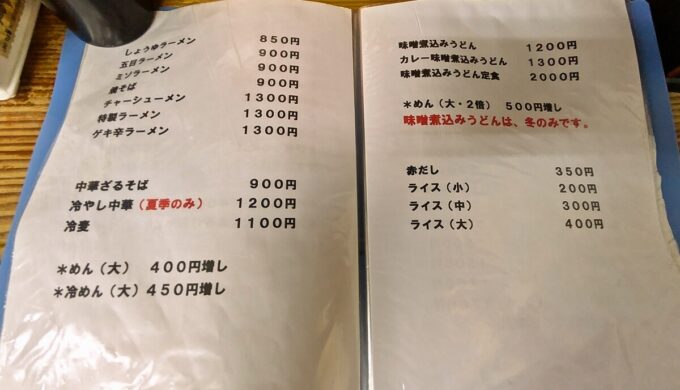 しょうゆラーメン 850円
五目ラーメン 900円
ミソラーメン 900円
焼そば 900円
チャーシューメン 1300円
特製ラーメン 1300円
ゲキ辛ラーメン 1300円
中華ざるそば 900円
冷やし中華(夏季のみ) 1200円
冷麦 1100円
*めん(大) 400円増し
*冷めん(大)450円増し
味噌煮込みうどん 1200円
カレー味噌煮込みうどん 1300円
味噌煮込みうどん定食 2000円
*めん(大・2倍) 500円増し
味噌煮込みうどんは、冬のみです。
赤だし 350円
ライス(小) 200円
ライス(中) 300円
ライス(大) 400円